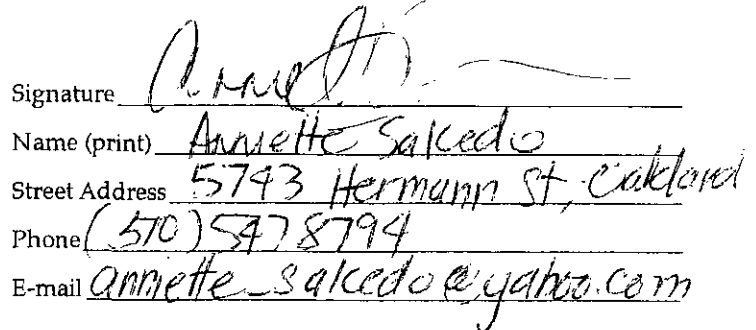 Signature
Name (print) Anniette Salcedo
Street Address 5743 Hermann St, Oakland
Phone (510) 547 8794
E-mail anniette_salcedo@yahoo.com